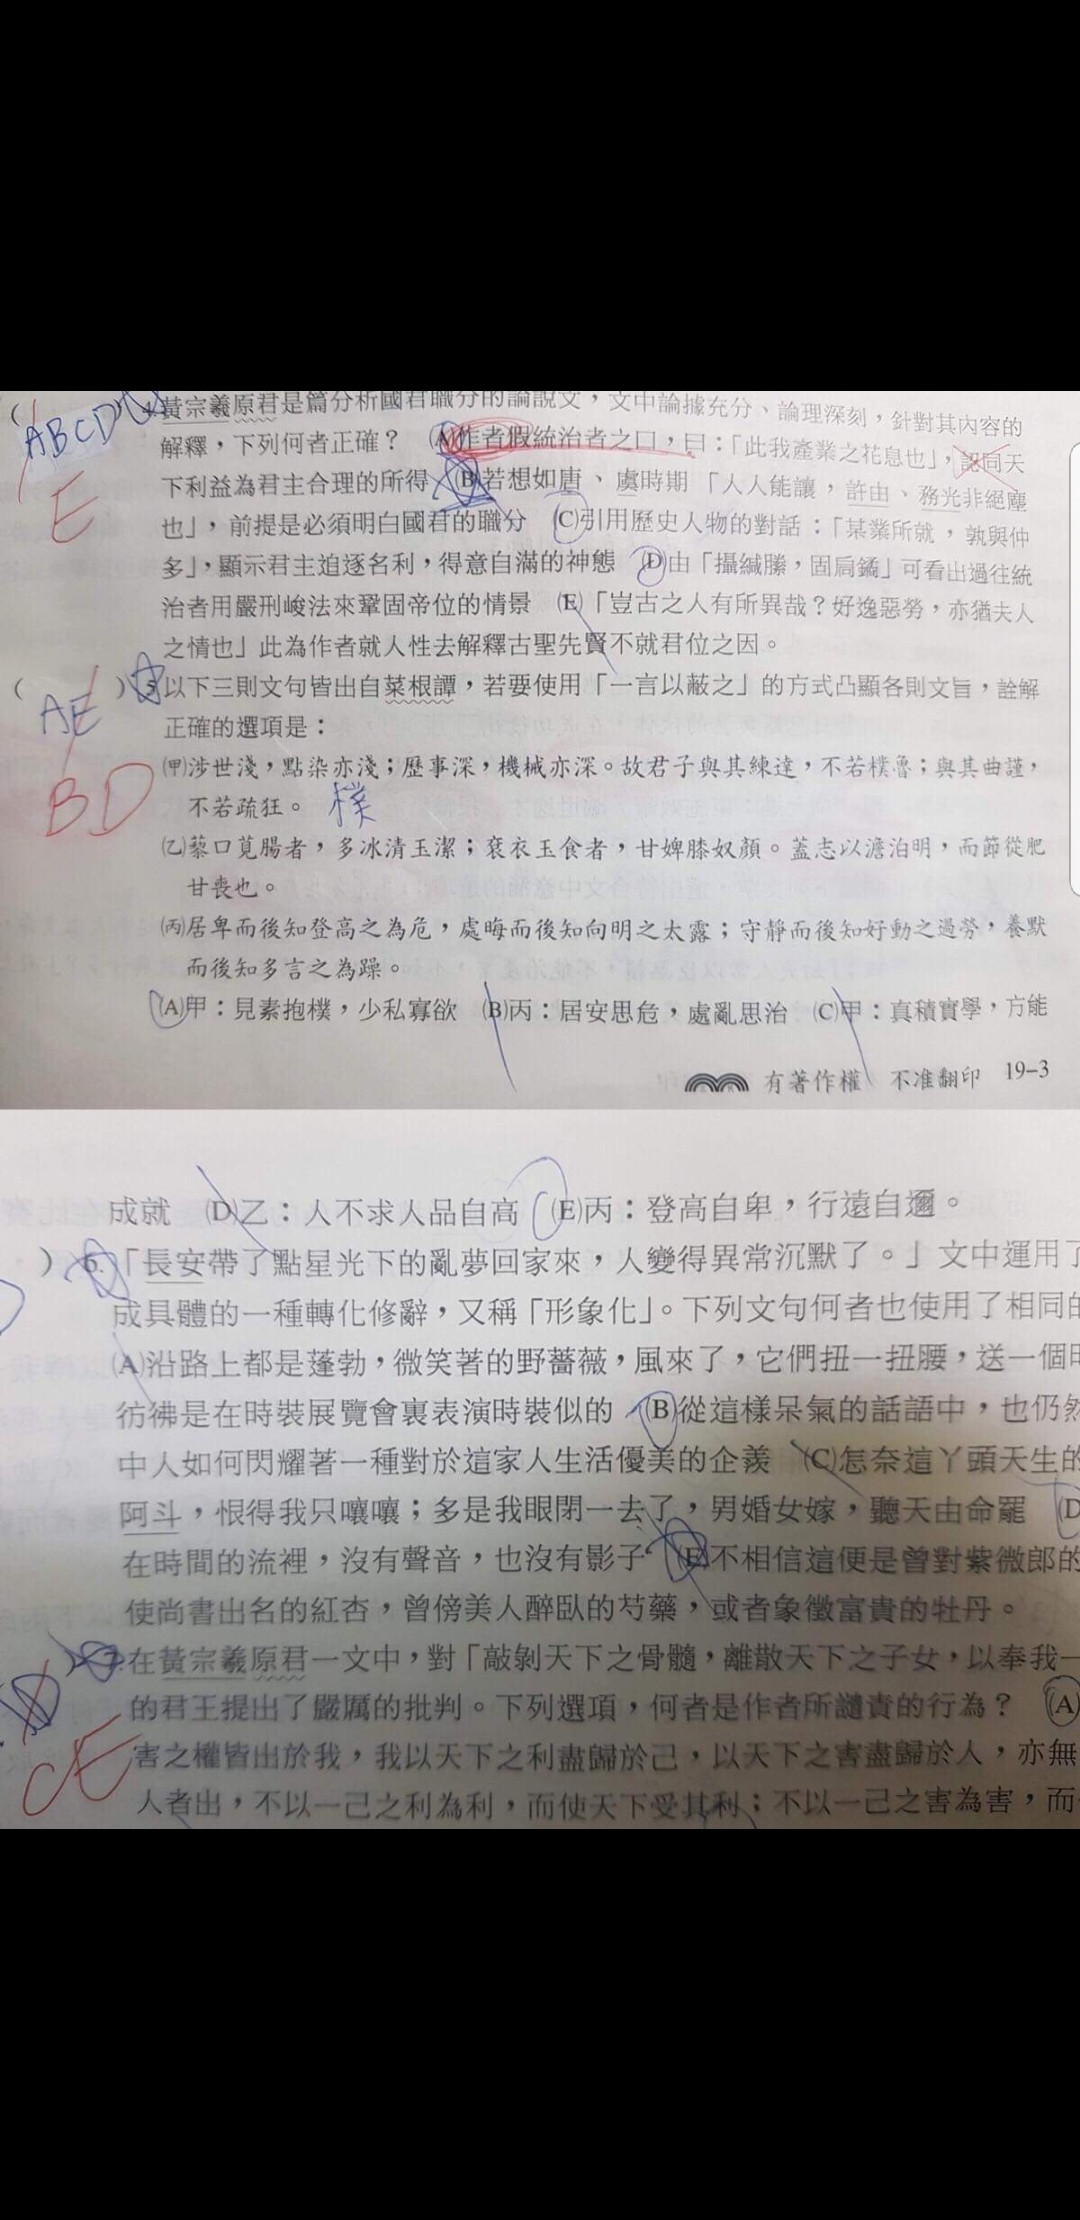 ABCD
E
4.黃宗羲原君是篇分析國君職分的論說文，文中論據充分、論理深刻，針對其內容的
解釋，下列何者正確？ (A)作者假統治者之口，曰：「此我產業之花息也」，認同天
下利益為君主合理的所得 (B)若想如唐、虞時期「人人能讓，許由、務光非絕塵
也」，前提是必須明白國君的職分 (C)引用歷史人物的對話：「某業所就，孰與仲
多」，顯示君主追逐名利，得意自滿的神態 (D)由「攝緘縢，固扃鐍」可看出過往統
治者用嚴刑峻法來鞏固帝位的情景 (E)「豈古之人有所異哉？好逸惡勞，亦猶夫人
之情也」此為作者就人性去解釋古聖先賢不就君位之因。
AE
BD
( )5.以下三則文句皆出自菜根譚，若要使用「一言以蔽之」的方式凸顯各則文旨，詮解
正確的選項是：
(甲)涉世淺，點染亦淺；歷事深，機械亦深。故君子與其練達，不若樸魯；與其曲謹，
不若疏狂。 樸
(乙)藜口莧腸者，多冰清玉潔；袞衣玉食者，甘婢膝奴顏。蓋志以澹泊明，而節從肥
甘喪也。
(丙)居卑而後知登高之為危，處晦而後知向明之太露；守靜而後知好動之過勞，養默
而後知多言之為躁。
(A)甲：見素抱樸，少私寡欲 (B)丙：居安思危，處亂思治 (C)甲：真積實學，方能
有著作權 不准翻印 19-3
成就 (D)乙：人不求人品自高 (E)丙：登高自卑，行遠自邇。
) 6.「長安帶了點星光下的亂夢回家來，人變得異常沉默了。」文中運用了
成具體的一種轉化修辭，又稱「形象化」。下列文句何者也使用了相同的
(A)沿路上都是蓬勃，微笑著的野薔薇，風來了，它們扭一扭腰，送一個
彷彿是在時裝展覽會裏表演時裝似的 (B)從這樣呆氣的話語中，也仍然
中人如何閃耀著一種對於這家人生活優美的企羨 (C)怎奈這丫頭天生的
阿斗，恨得我只嚷嚷；多是我眼閉一去了，男婚女嫁，聽天由命罷 (D
在時間的流裡，沒有聲音，也沒有影子 (E)不相信這便是曾對紫微郎的
使尚書出名的紅杏，曾傍美人醉臥的芍藥，或者象徵富貴的牡丹。
) 7.在黃宗羲原君一文中，對「敲剝天下之骨髓，離散天下之子女，以奉我一
的君王提出了嚴厲的批判。下列選項，何者是作者所譴責的行為？ (A)
CE
害之權皆出於我，我以天下之利盡歸於己，以天下之害盡歸於人，亦無
人者出，不以一己之利為利，而使天下受其利；不以一己之害為害，而